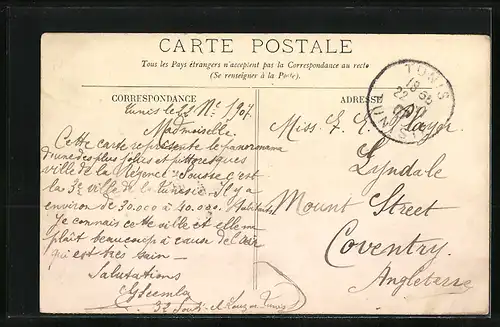 CARTE POSTALE
Tous les Pays étrangers n'acceptent pas la Correspondance au recto
(Se renseigner à la Poste).
CORRESPONDANCE
Tunis le 21 1907
Madmoiselle
Cette carte représente le panorama
d'une des plus jolies et pittoresques
ville de la Régence: Sousse c'est
la 3e ville de la Tunisie. Il y a
environ de 30.000 à 40.000. habitants
Je connais cette ville et elle me
plaît beaucoup à cause de l'air
qui est très sain —
Salutations
Tunis
ADRESSE
TUNIS
TUNISIE
Miss
Lyndale
Mount Street
Coventry.
Angleterre